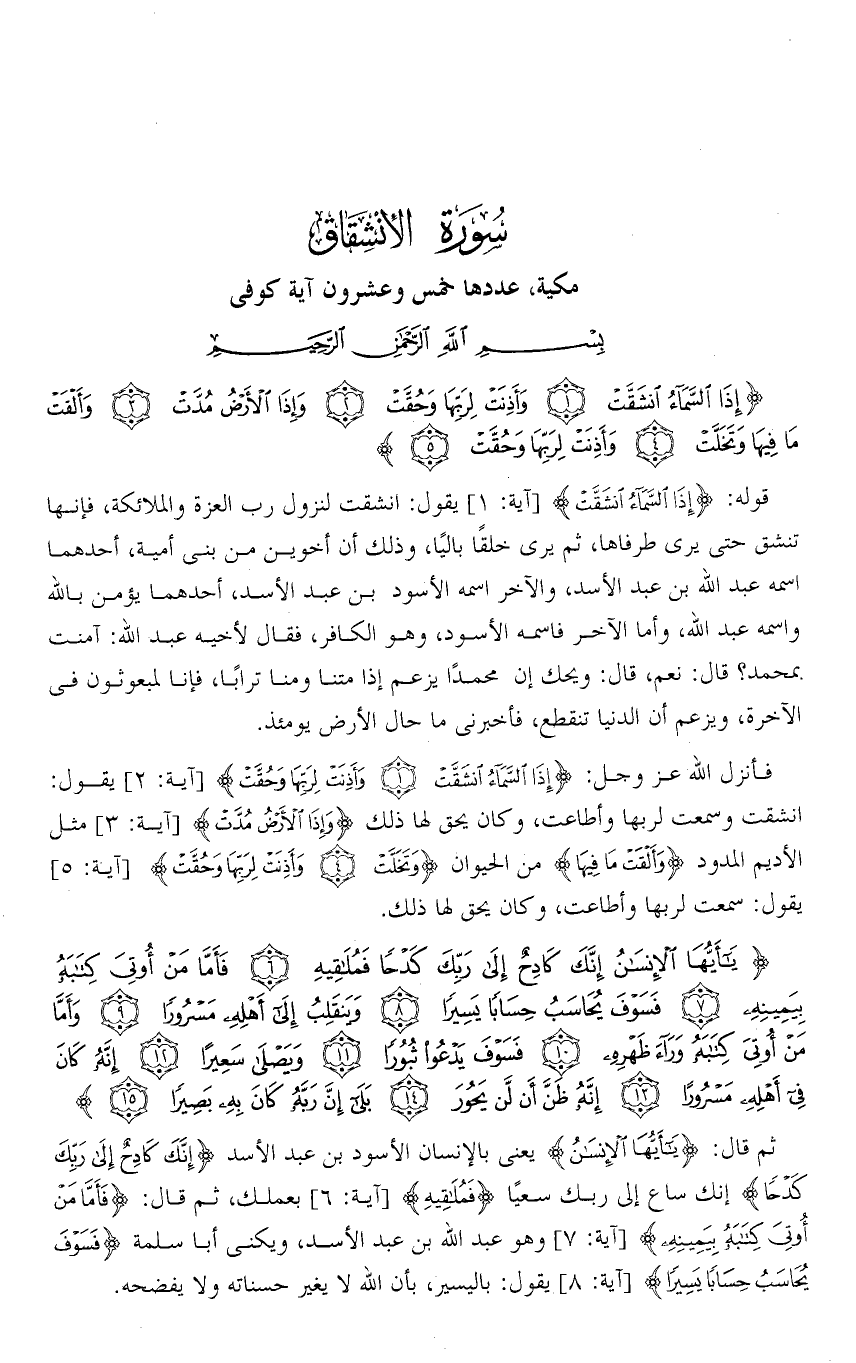 سُورَة الانْشِقَاق
مكية، عددها خمس وعشرون آية كوفى
بِسْمِ ٱللَّهِ ٱلرَّحْمَٰنِ ٱلرَّحِيمِ
﴿ إِذَا ٱلسَّمَآءُ ٱنشَقَّتْ ١ وَأَذِنَتْ لِرَبِّهَا وَحُقَّتْ ٢ وَإِذَا ٱلْأَرْضُ مُدَّتْ ٣ وَأَلْقَتْ
مَا فِيهَا وَتَخَلَّتْ ٤ وَأَذِنَتْ لِرَبِّهَا وَحُقَّتْ ٥ ﴾
قوله: ﴿إِذَا ٱلسَّمَآءُ ٱنشَقَّتْ﴾ [آية: ١] يقول: انشقت لنزول رب العزة والملائكة، فإنها
تنشق حتى يرى طرفاها، ثم يرى خلقًا باليًا، وذلك أن أخوين من بنى أمية، أحدهما
اسمه عبد الله بن عبد الأسد، والآخر اسمه الأسود بن عبد الأسد، أحدهما يؤمن بالله
واسمه عبد الله، وأما الآخر فاسمه الأسود، وهو الكافر، فقال لأخيه عبد الله: آمنت
بمحمد؟ قال: نعم، قال: ويحك إن محمدًا يزعم إذا متنا ومنا ترابًا، فإنا لمبعوثون فى
الآخرة، ويزعم أن الدنيا تنقطع، فأخبرنى ما حال الأرض يومئذ.
فأنزل الله عز وجل: ﴿إِذَا ٱلسَّمَآءُ ٱنشَقَّتْ ١ وَأَذِنَتْ لِرَبِّهَا وَحُقَّتْ﴾ [آية: ٢] يقول:
انشقت وسمعت لربها وأطاعت، وكان يحق لها ذلك ﴿وَإِذَا ٱلْأَرْضُ مُدَّتْ﴾ [آية: ٣] مثل
الأديم المدود ﴿وَأَلْقَتْ مَا فِيهَا﴾ من الحيوان ﴿وَتَخَلَّتْ ٤ وَأَذِنَتْ لِرَبِّهَا وَحُقَّتْ﴾ [آية: ٥]
يقول: سمعت لربها وأطاعت، وكان يحق لها ذلك.
﴿ يَٰٓأَيُّهَا ٱلْإِنسَٰنُ إِنَّكَ كَادِحٌ إِلَىٰ رَبِّكَ كَدْحًا فَمُلَٰقِيهِ ٦ فَأَمَّا مَنْ أُوتِىَ كِتَٰبَهُۥ
بِيَمِينِهِۦ ٧ فَسَوْفَ يُحَاسَبُ حِسَابًا يَسِيرًا ٨ وَيَنقَلِبُ إِلَىٰٓ أَهْلِهِۦ مَسْرُورًا ٩ وَأَمَّا
مَنْ أُوتِىَ كِتَٰبَهُۥ وَرَآءَ ظَهْرِهِۦ ١٠ فَسَوْفَ يَدْعُوا۟ ثُبُورًا ١١ وَيَصْلَىٰ سَعِيرًا ١٢ إِنَّهُۥ كَانَ
فِىٓ أَهْلِهِۦ مَسْرُورًا ١٣ إِنَّهُۥ ظَنَّ أَن لَّن يَحُورَ ١٤ بَلَىٰٓ إِنَّ رَبَّهُۥ كَانَ بِهِۦ بَصِيرًا ١٥ ﴾
ثم قال: ﴿يَٰٓأَيُّهَا ٱلْإِنسَٰنُ﴾ يعنى بالإنسان الأسود بن عبد الأسد ﴿إِنَّكَ كَادِحٌ إِلَىٰ رَبِّكَ
كَدْحًا﴾ إنك ساع إلى ربك سعيًا ﴿فَمُلَٰقِيهِ﴾ [آية: ٦] بعملك، ثم قال: ﴿فَأَمَّا مَنْ
أُوتِىَ كِتَٰبَهُۥ بِيَمِينِهِۦ﴾ [آية: ٧] وهو عبد الله بن عبد الأسد، ويكنى أبا سلمة ﴿فَسَوْفَ
يُحَاسَبُ حِسَابًا يَسِيرًا﴾ [آية: ٨] يقول: باليسير، بأن الله لا يغير حسناته ولا يفضحه.